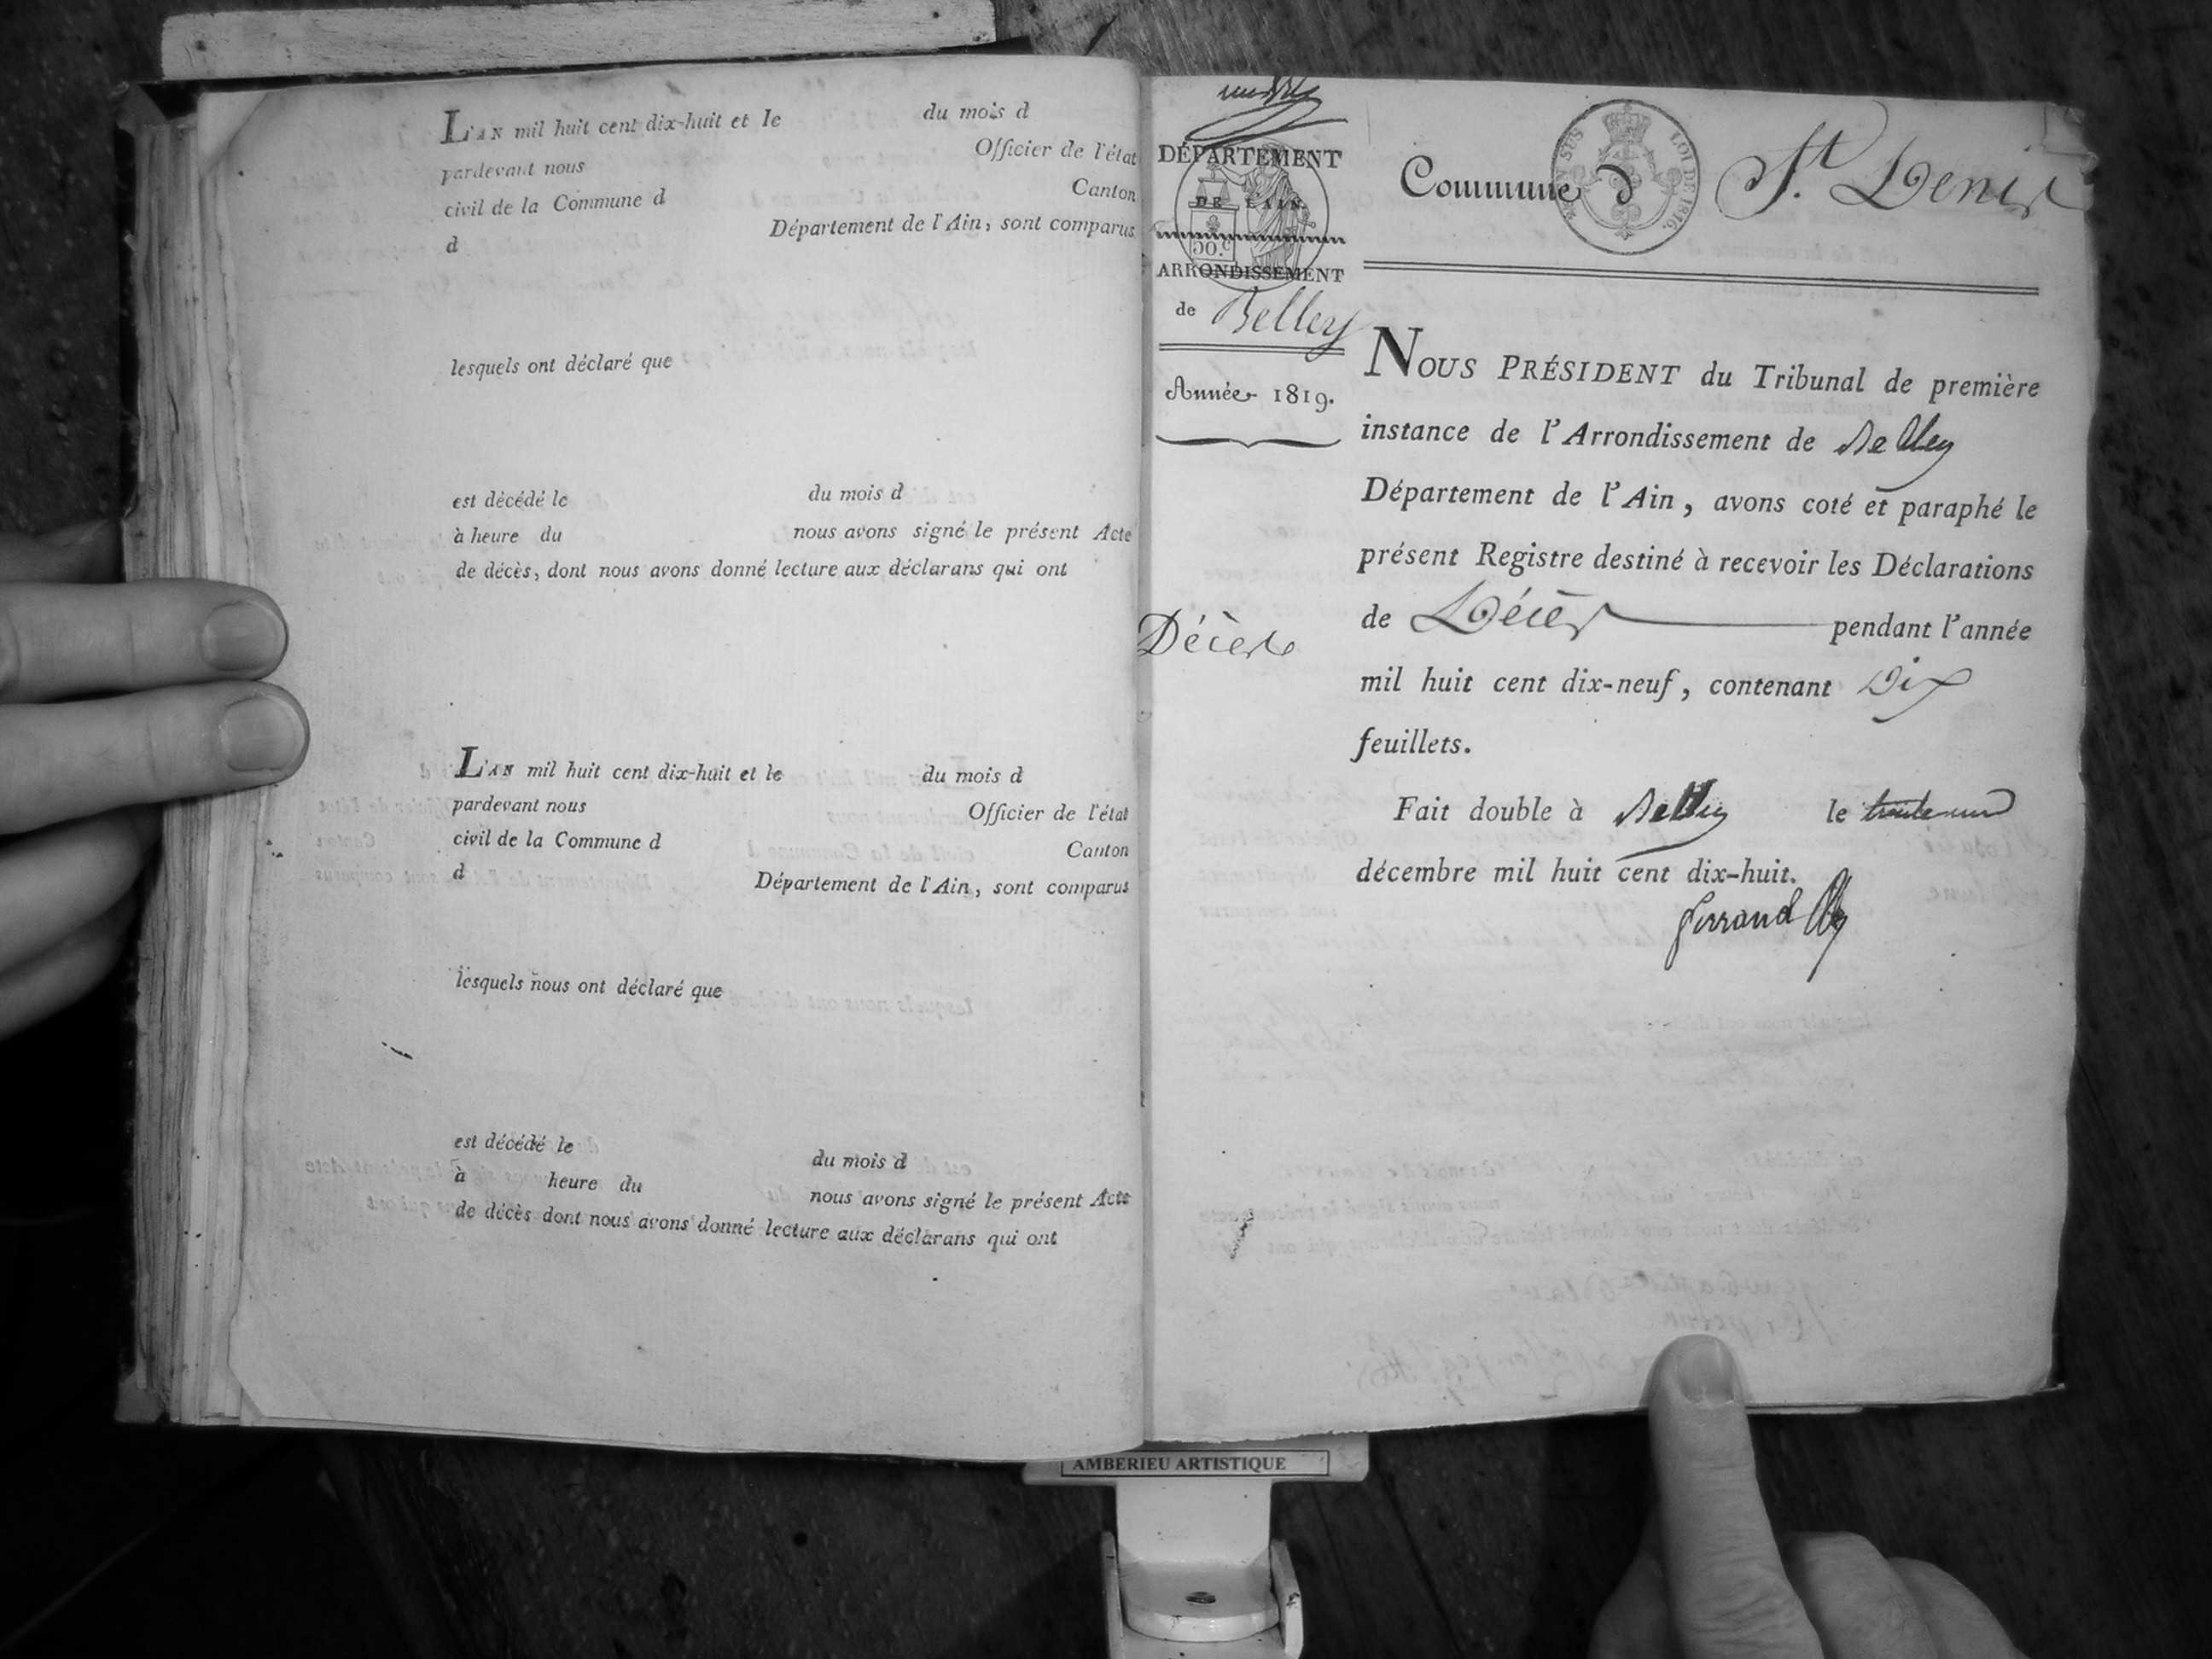 L'AN mil huit cent dix-huit et le du mois d
pardevant nous Officier de l'état
civil de la Commune d Canton
d Département de l'Ain, sont comparus
lesquels ont déclaré que
est décédé le du mois d
à heure du nous avons signé le présent Acte
de décès, dont nous avons donné lecture aux déclarans qui ont
L'AN mil huit cent dix-huit et le du mois d
pardevant nous Officier de l'état
civil de la Commune d Canton
d Département de l'Ain, sont comparus
lesquels nous ont déclaré que
est décédé le du mois d
à heure du nous avons signé le présent Acte
de décès dont nous avons donné lecture aux déclarans qui ont
DÉPARTEMENT
DE L'AIN.
50 C
ARRONDISSEMENT
de Belley
Année 1819.
Décès
Commune d St. Denis
LOI DE 1816.
NOUS PRÉSIDENT du Tribunal de première
instance de l'Arrondissement de Belley
Département de l'Ain, avons coté et paraphé le
présent Registre destiné à recevoir les Déclarations
de Décès pendant l'année
mil huit cent dix-neuf, contenant Dix
feuillets.
Fait double à Belley le trente un
décembre mil huit cent dix-huit.
Ferrand
AMBERIEU ARTISTIQUE